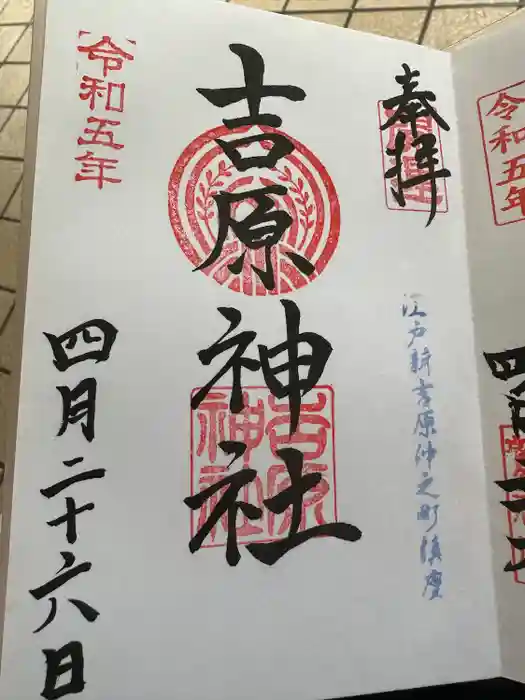 奉拝
江戸新吉原仲之町鎮座
吉原神社
吉原神社
令和五年
四月二十六日
令和五年